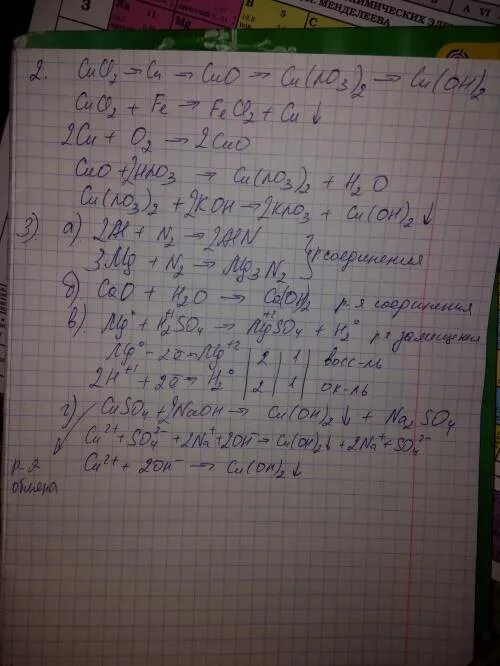 З
Na
11
Mg
В
5
С
A VI
ХИМИЧЕСКИХ ЭЛЕ
МЕНДЕЛЕЕВА
2. CuCl₂ → Cu → CuO → Cu(NO₃)₂ → Cu(OH)₂
CuCl₂ + Fe → FeCl₂ + Cu↓
2Cu + O₂ → 2CuO
CuO + 2HNO₃ → Cu(NO₃)₂ + H₂O
Cu(NO₃)₂ + 2KOH → 2KNO₃ + Cu(OH)₂↓
3) а) 2Al + N₂ → 2AlN
3Mg + N₂ → Mg₃N₂ } р соединения
б) CaO + H₂O → Ca(OH)₂ р-я соединения
в) Mg⁰ + H₂⁺¹SO₄ → Mg⁺²SO₄ + H₂⁰ р-я замещения
Mg⁰ - 2ē → Mg⁺² | 2 | 1 | восс-ль
2H⁺¹ + 2ē → H₂⁰ | 2 | 1 | ок-ль
г) CuSO₄ + 2NaOH → Cu(OH)₂↓ + Na₂SO₄
Cu²⁺ + SO₄²⁻ + 2Na⁺ + 2OH⁻ → Cu(OH)₂↓ + 2Na⁺ + SO₄²⁻
р-я обмена
Cu²⁺ + 2OH⁻ → Cu(OH)₂↓